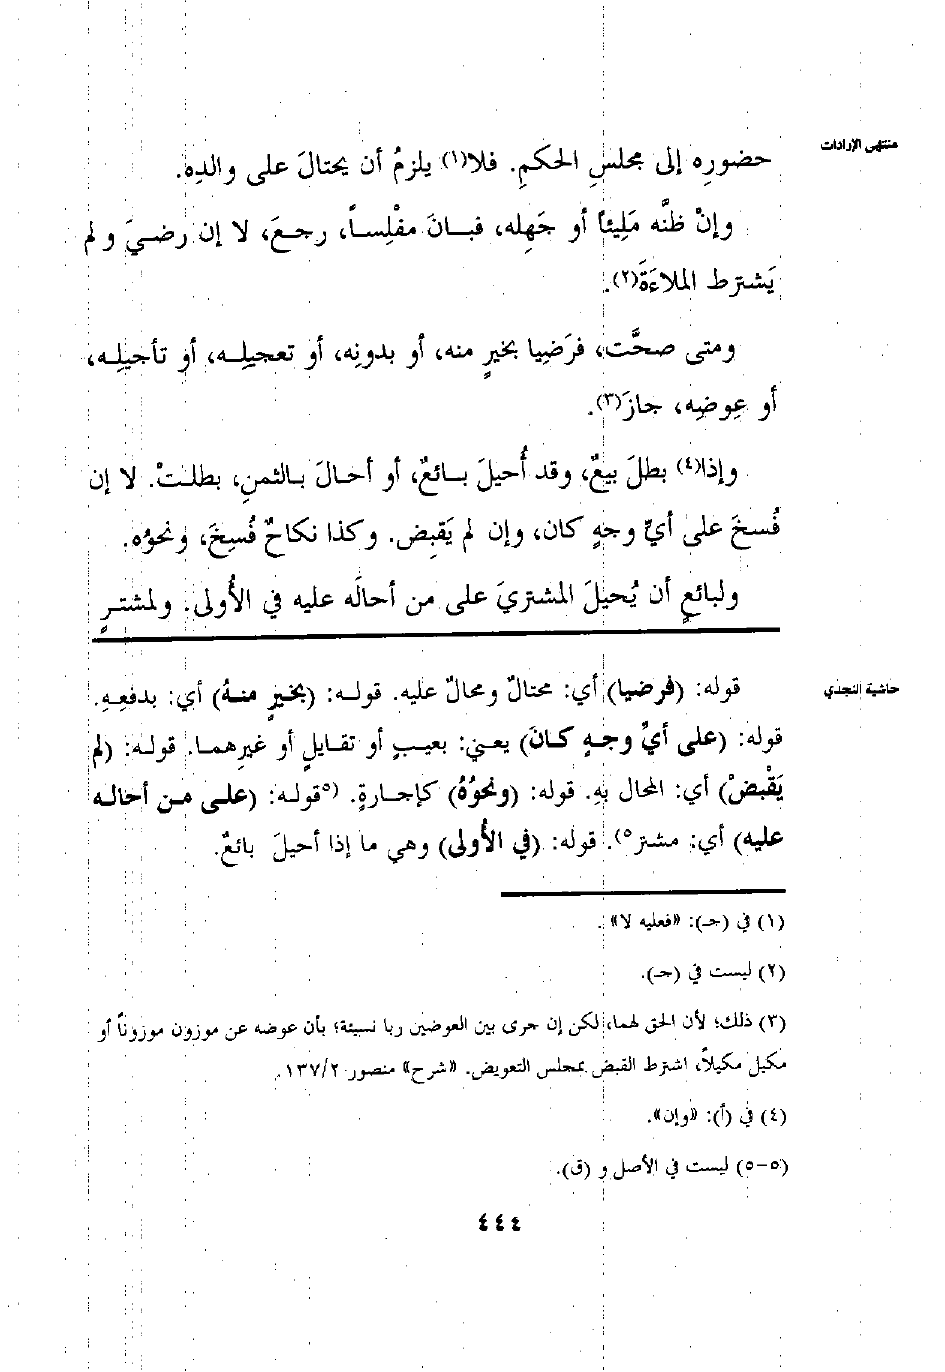 منتهى الإرادات
حضورِه إلى مجلسِ الحكمِ. فلا(١) يلزمُ أن يحتالَ على والدِه.
وإنْ ظنَّه مَلِيئاً أو جَهِله، فبـانَ مفْلِسـاً، رجـعَ، لا إن رضـيَ و لم
يَشترط الملاءَةَ(٢).
ومتى صحَّت، فرَضِيا بخيرٍ منه، أو بدونِه، أو تعجيلِـه، أو تأجيلِـه،
أو عِوضِه، جازَ(٣).
وإذا(٤) بطلَ بيعٌ، وقد أُحيلَ بـائعٌ، أو أحـالَ بـالثمنِ، بطلـتْ. لا إن
فُسخَ على أيِّ وجهٍ كان، وإن لم يَقبِض. وكذا نكاحٌ فُسِخَ، ونحوُه.
ولبائعٍ أن يُحيلَ المشتريَ على من أحالَه عليه في الأُولى. ولمشتـرٍ
حاشية النجدي
قوله: (فرضيا) أي: محتالٌ ومحالٌ عليه. قولـه: (بخيرٍ منهُ) أي: بدفعِـهِ.
قوله: (على أيِّ وجـهٍ كـانَ) يعني: بعيـبٍ أو تقـايلٍ أو غيرِهمـا. قولـه: (لم
يَقْبضْ) أي: المحال بهِ. قوله: (ونحوُهُ) كإجـارةٍ. (٥قولـه: (علـى مـن أحالـه
عليه) أي: مشترٍ٥). قوله: (في الأُولى) وهي ما إذا أحيلَ بائعٌ.
(١) في (جـ): «فعليه لا».
(٢) ليست في (جـ).
(٣) ذلك؛ لأن الحق لهما، لكن إن جرى بين العوضين ربا نسيئة؛ بأن عوضه عن موزون موزوناً أو
مكيل مكيلاً، اشترط القبض بمجلس التعويض. «شرح» منصور ١٣٧/٢.
(٤) في (أ): «وإن».
(٥-٥) ليست في الأصل و (ق).
٤٤٤